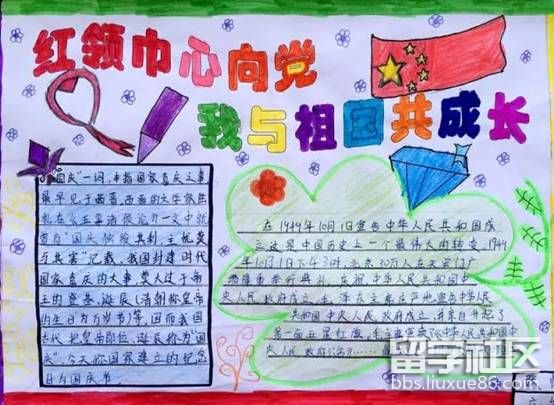 红领巾心向党
我与祖国共成长
"国庆"一词，本指国家喜庆之事
最早见于西晋。西晋的文学家陆
机在《五等诸侯论》一文中就
曾有"国庆独飨其利，主忧莫
与其害"记载、我国封建时代
国家喜庆的大事莫大过于帝
王的登基、诞辰（清朝称皇帝
的生日为万岁节）等，因而我国
古代把皇帝即位、诞辰称为"国
庆"。今天称国家建立的纪念
日为国庆节
在1949年10月1日宣告中华人民共和国成
立这是中国历史上一个最伟大的转变、1949
年10月1日下午3时，北京30万人在天安门广
场隆重举行典礼，庆祝中华人民共和国中
央人民政府成立。毛泽东主席庄严地宣告中华人民
共和国中央人民政府成立，并亲自升起了
第一面五星红旗。毛主席宣读《中华人民共和国中
央人民政府公告》……
留学社区
bbs.liuxue86.com